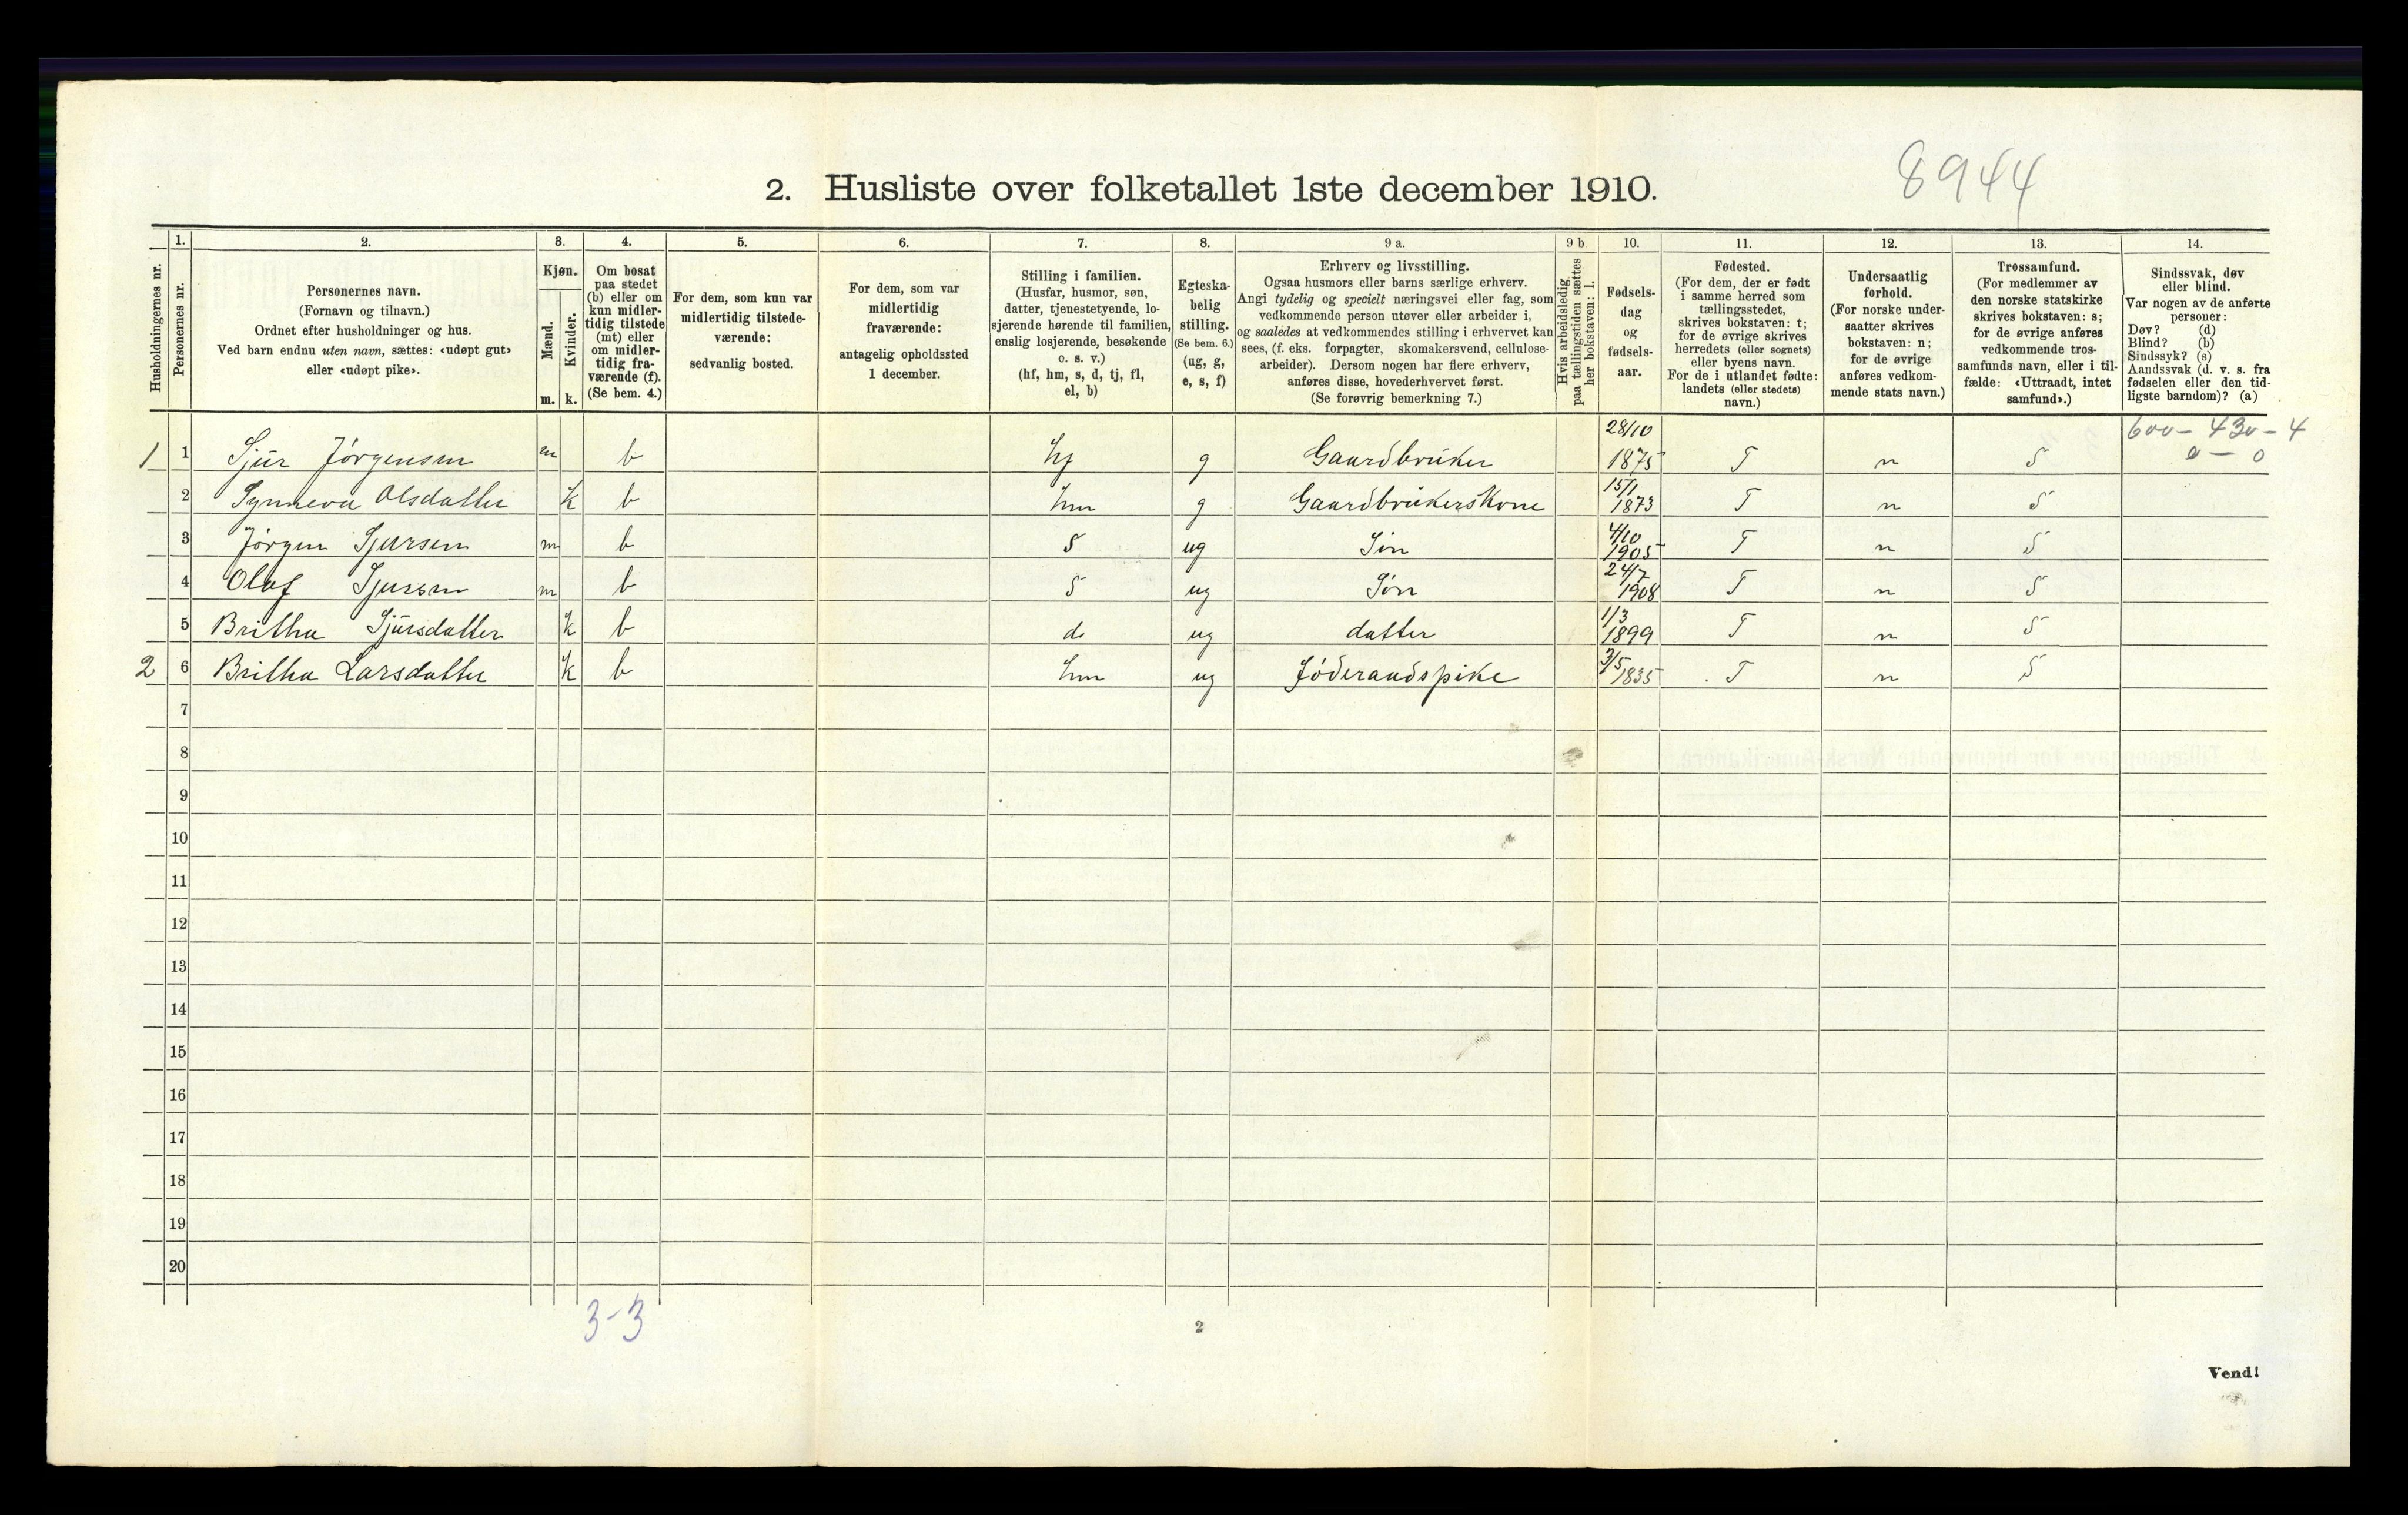 8944
2. Husliste over folketallet 1ste december 1910.
1. 2. 3. 4. 5. 6. 7. 8. 9 a. 9 b 10. 11. 12. 13. 14.
Husholdningernes nr.
Personernes nr.
Personernes navn.
(Fornavn og tilnavn.)
Ordnet efter husholdninger og hus.
Ved barn endnu uten navn, sættes: «udøpt gut»
eller «udøpt pike».
Kjøn.
Mænd.
Kvinder.
m. k.
Om bosat
paa stedet
(b) eller om
kun midler-
tidig tilstede
(mt) eller
om midler-
tidig fra-
værende (f).
(Se bem. 4.)
For dem, som kun var
midlertidig tilstede-
værende:
sedvanlig bosted.
For dem, som var
midlertidig
fraværende:
antagelig opholdssted
1 december.
Stilling i familien.
(Husfar, husmor, søn,
datter, tjenestetyende, lo-
sjerende hørende til familien,
enslig losjerende, besøkende
o. s. v.)
(hf, hm, s, d, tj, fl,
el, b)
Egteska-
belig
stilling.
(Se bem. 6.)
(ug, g,
e, s, f)
Erhverv og livsstilling.
Ogsaa husmors eller barns særlige erhverv.
Angi tydelig og specielt næringsvei eller fag, som
vedkommende person utøver eller arbeider i,
og saaledes at vedkommendes stilling i erhvervet kan
sees, (f. eks. forpagter, skomakersvend, cellulose-
arbeider). Dersom nogen har flere erhverv,
anføres disse, hovederhvervet først.
(Se forøvrig bemerkning 7.)
Hvis arbeidsledig
paa tællingstiden sættes
her bokstaven: l.
Fødsels-
dag
og
fødsels-
aar.
Fødested.
(For dem, der er født
i samme herred som
tællingsstedet,
skrives bokstaven: t;
for de øvrige skrives
herredets (eller sognets)
eller byens navn.
For de i utlandet fødte:
landets (eller stedets)
navn.)
Undersaatlig
forhold.
(For norske under-
saatter skrives
bokstaven: n;
for de øvrige
anføres vedkom-
mende stats navn.)
Trossamfund.
(For medlemmer av
den norske statskirke
skrives bokstaven: s;
for de øvrige anføres
vedkommende tros-
samfunds navn, eller i til-
fælde: «Uttraadt, intet
samfund».)
Sindssvak, døv
eller blind.
Var nogen av de anførte
personer:
Døv? (d)
Blind? (b)
Sindssyk? (s)
Aandssvak (d. v. s. fra
fødselen eller den tid-
ligste barndom)? (a)
600 - 430 - 4
0 - 0
1 1 Sjur Jørgensen m b hf g Gaardbruker 28/10 1875 T n S
2 Synneva Olsdatter k b hm g Gaardbrukerskone 15/1 1873 T n S
3 Jørgen Sjursen m b S ug Søn 4/10 1905 T n S
4 Olaf Sjursen m b S ug Søn 24/7 1908 T n S
5 Britha Sjursdatter k b d. ug datter 1/3 1899 T n S
2 6 Britha Larsdatter k b hm ug Føderaadspike 3/5 1835 T n S
7
8
9
10
11
12
13
14
15
16
17
18
19
20
3-3
2
Vend!